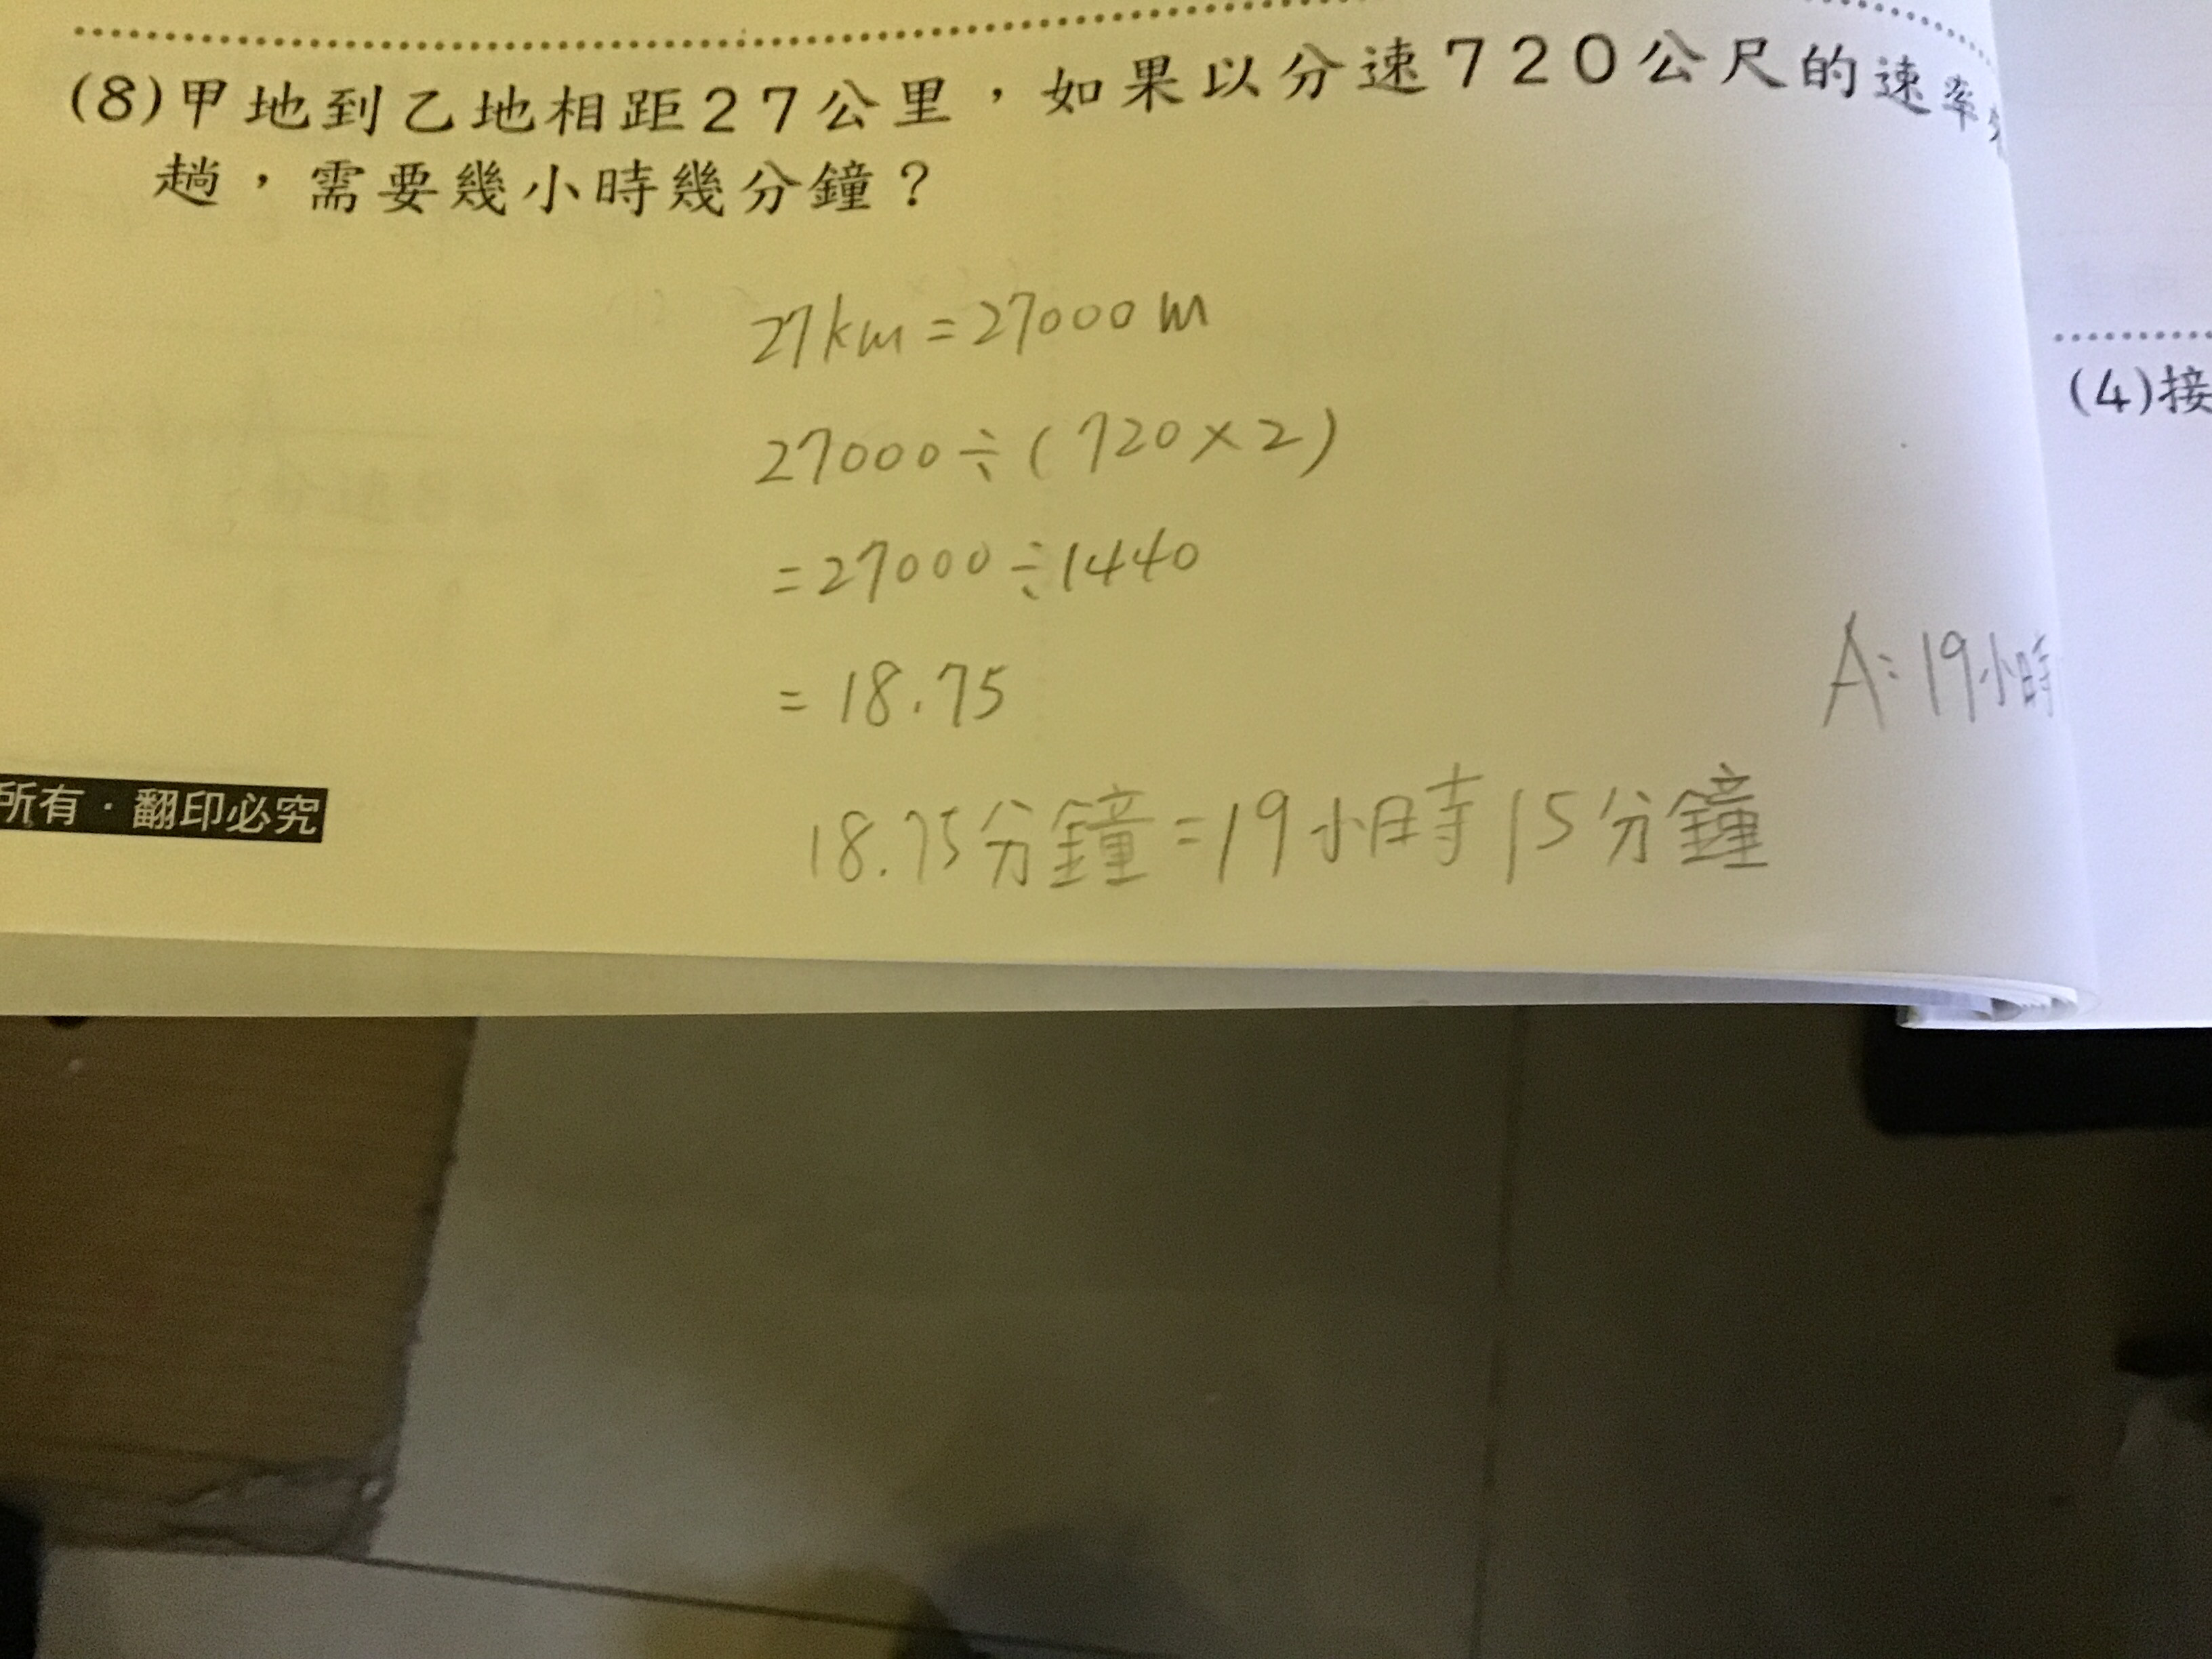 (8)甲地到乙地相距27公里，如果以分速720公尺的速率
趟，需要幾小時幾分鐘？
27km=27000m
27000÷(720×2)
=27000÷1440
=18.75
A:19小時
18.75分鐘=19小時15分鐘
所有·翻印必究
(4)接